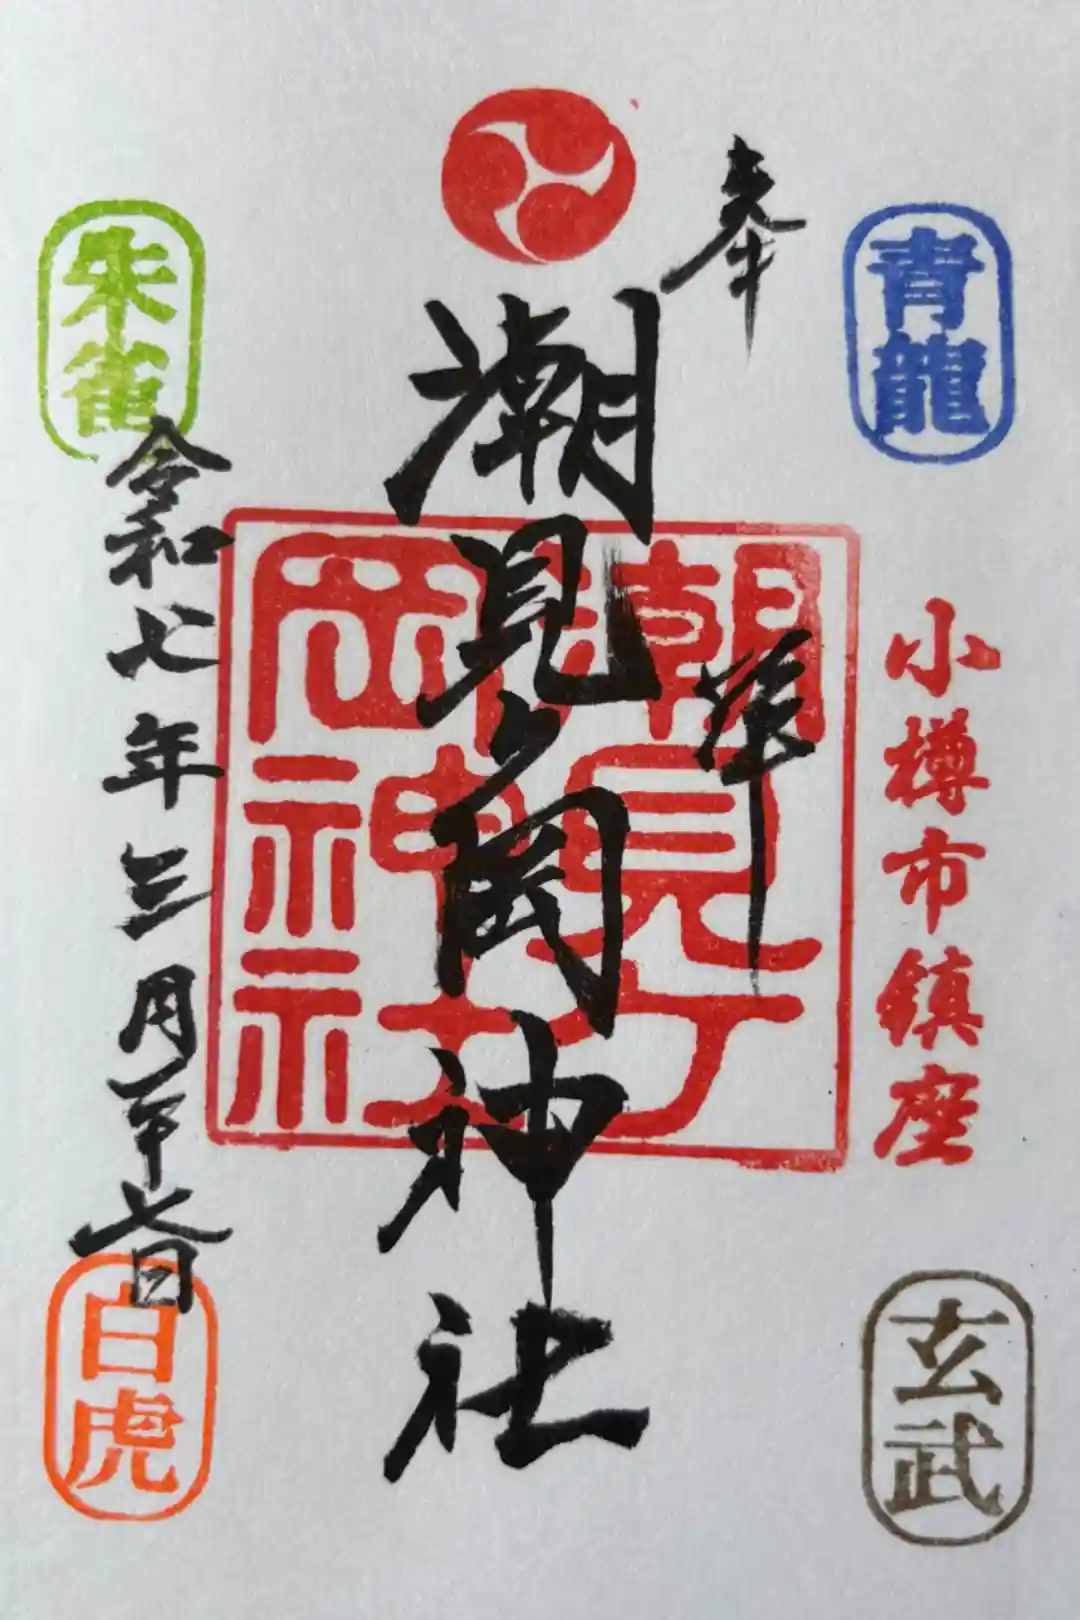 青龍
小樽市鎮座
玄武
奉拝
潮見ヶ岡神社
潮見ケ
岡神社
朱雀
令和七年三月二十七日
白虎